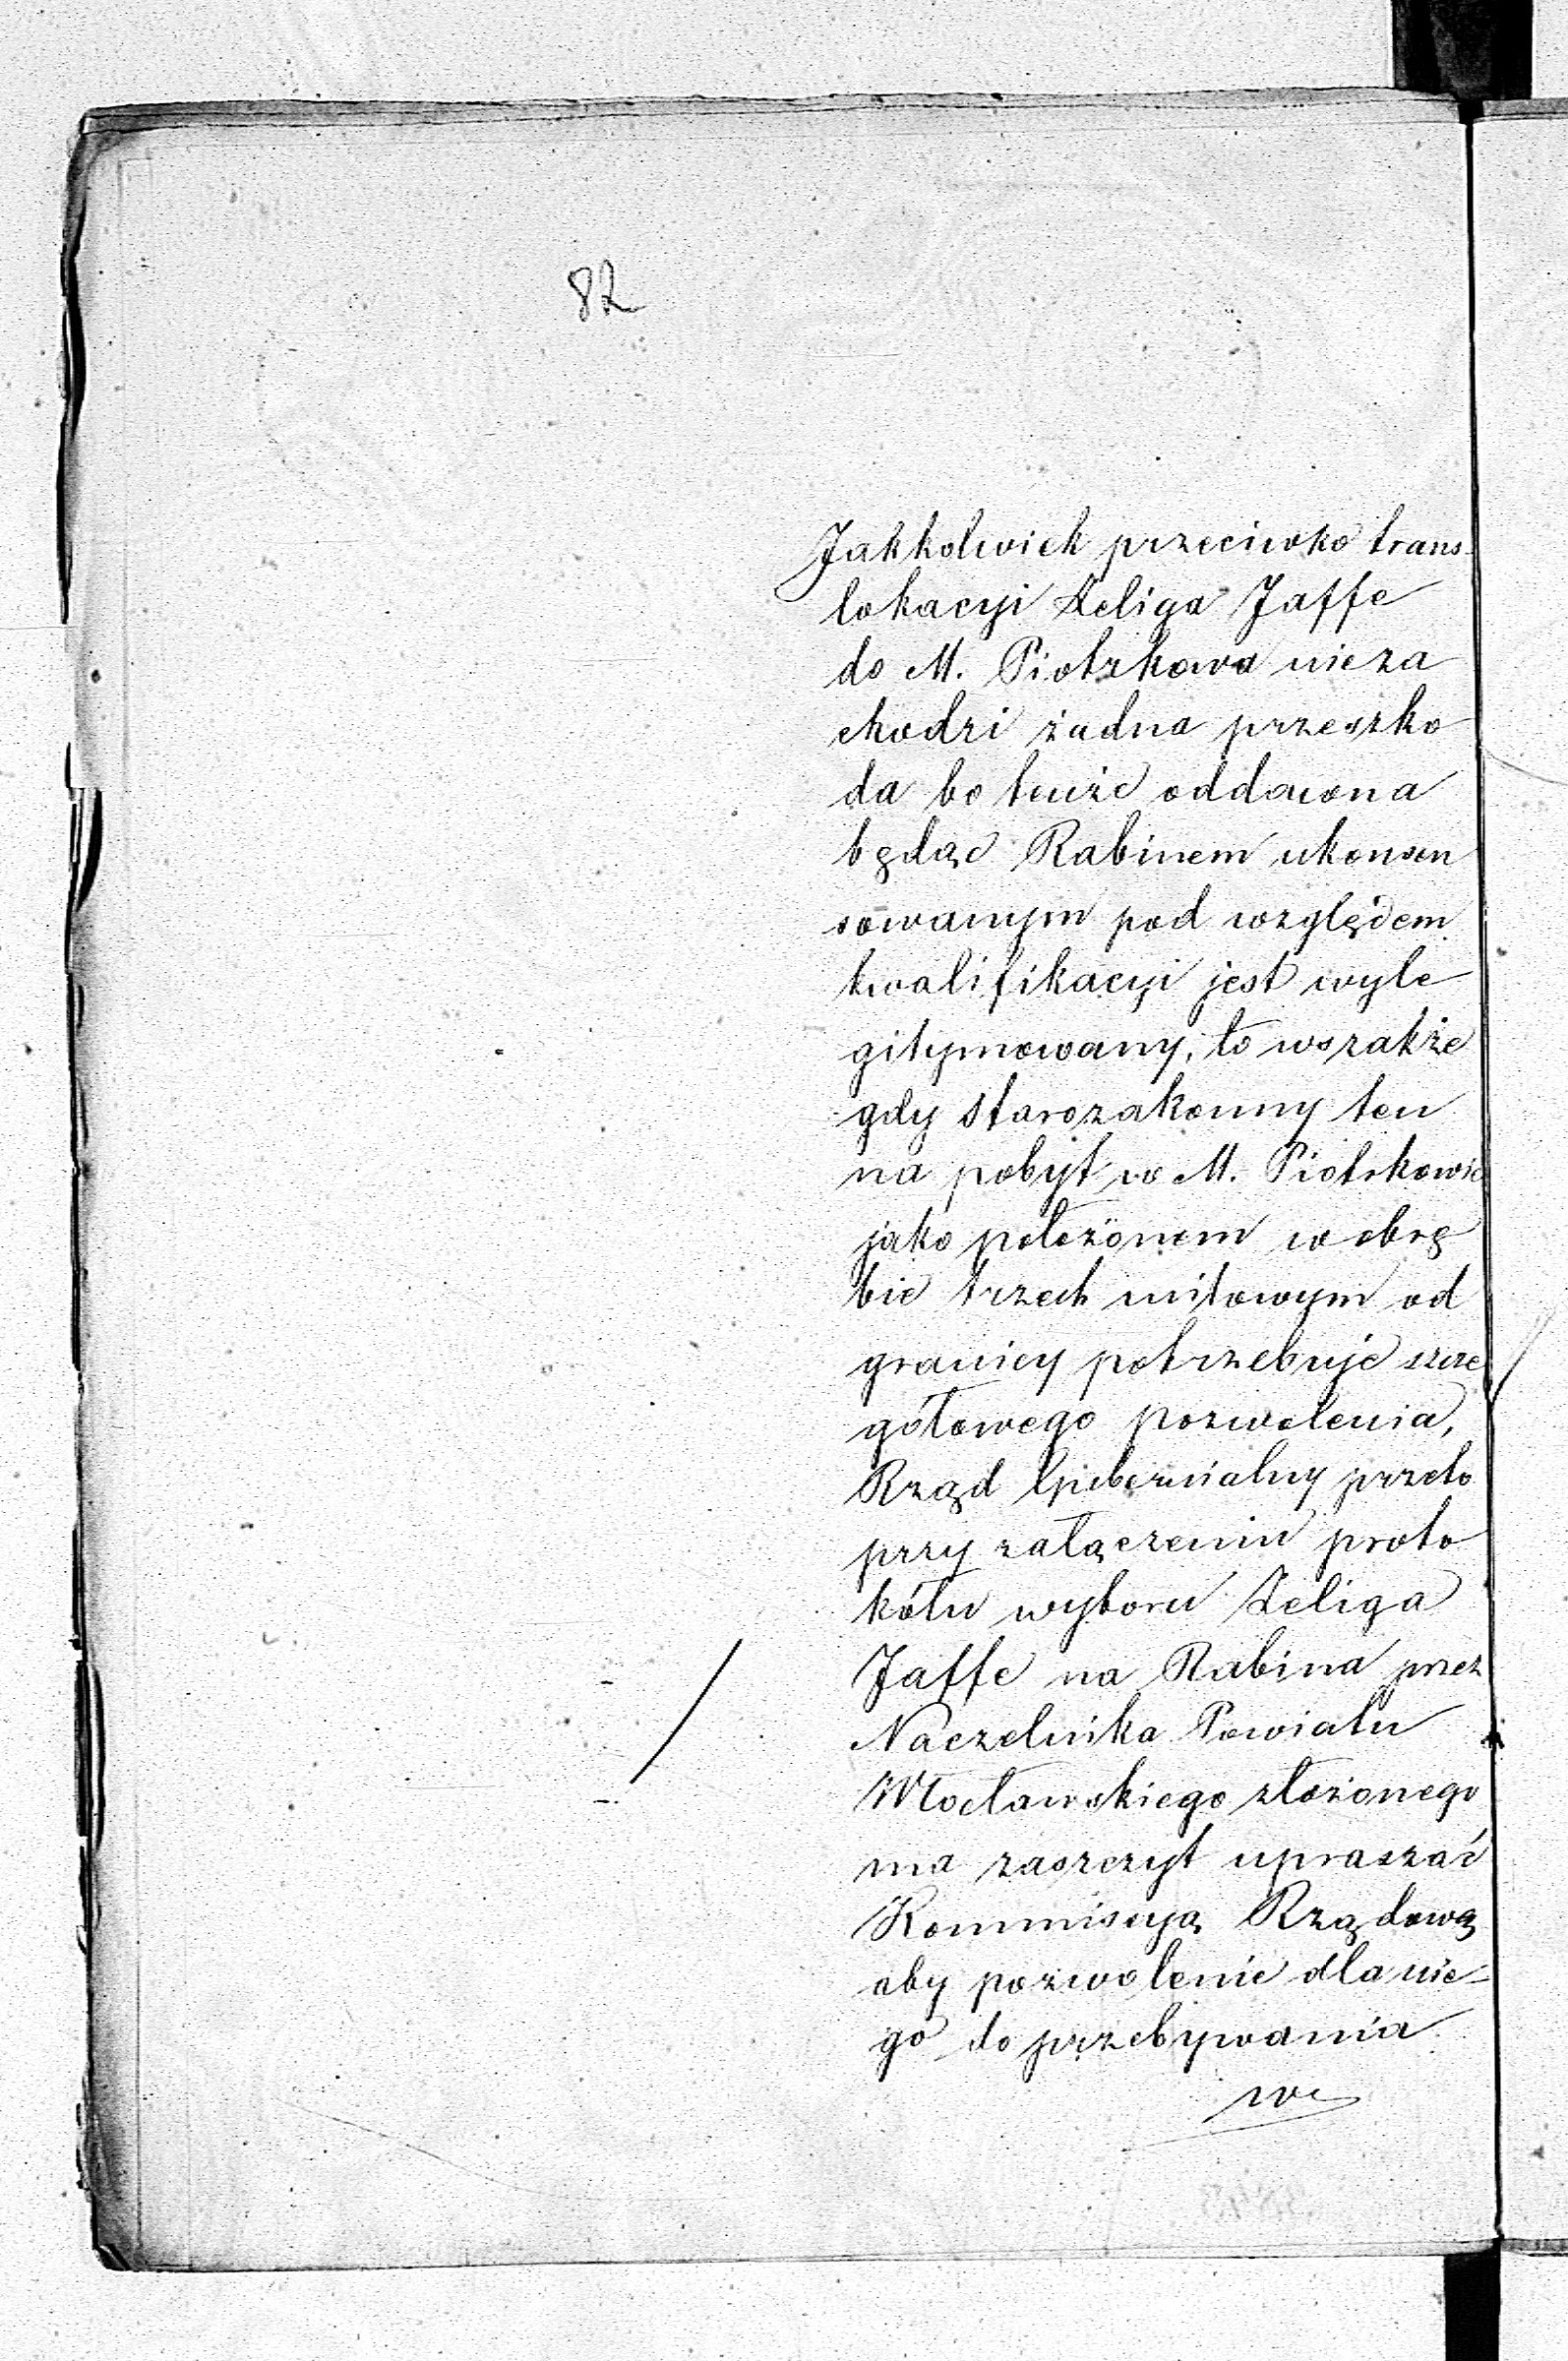 82
Jakkolwiek przeciwko trans-
lokacyi Zeliga Jaffe
do M. Piotrkowa nieza
chodzi żadna przeszko
da bo tenże oddawna
będąc Rabinem ukonsen
sowanym pod względem
kwalifikacyi jest wyle
gitymowany, to wszakże
gdy starozakonny ten
na pobyt w M. Piotrkowie
jako położonem w obrę
bie trzech milowym od
granicy potrzebuje szcze
gółowego pozwolenia,
Rząd Gubernialny przeto
przy załączeniu proto
kółu wyboru Zeliga
Jaffe na Rabina przez
Naczelnika Powiatu
Włocławskiego złożonego
ma zaszczyt upraszać
Kommissyą Rządową
aby pozwolenie dla nie=
go do przebywania
we